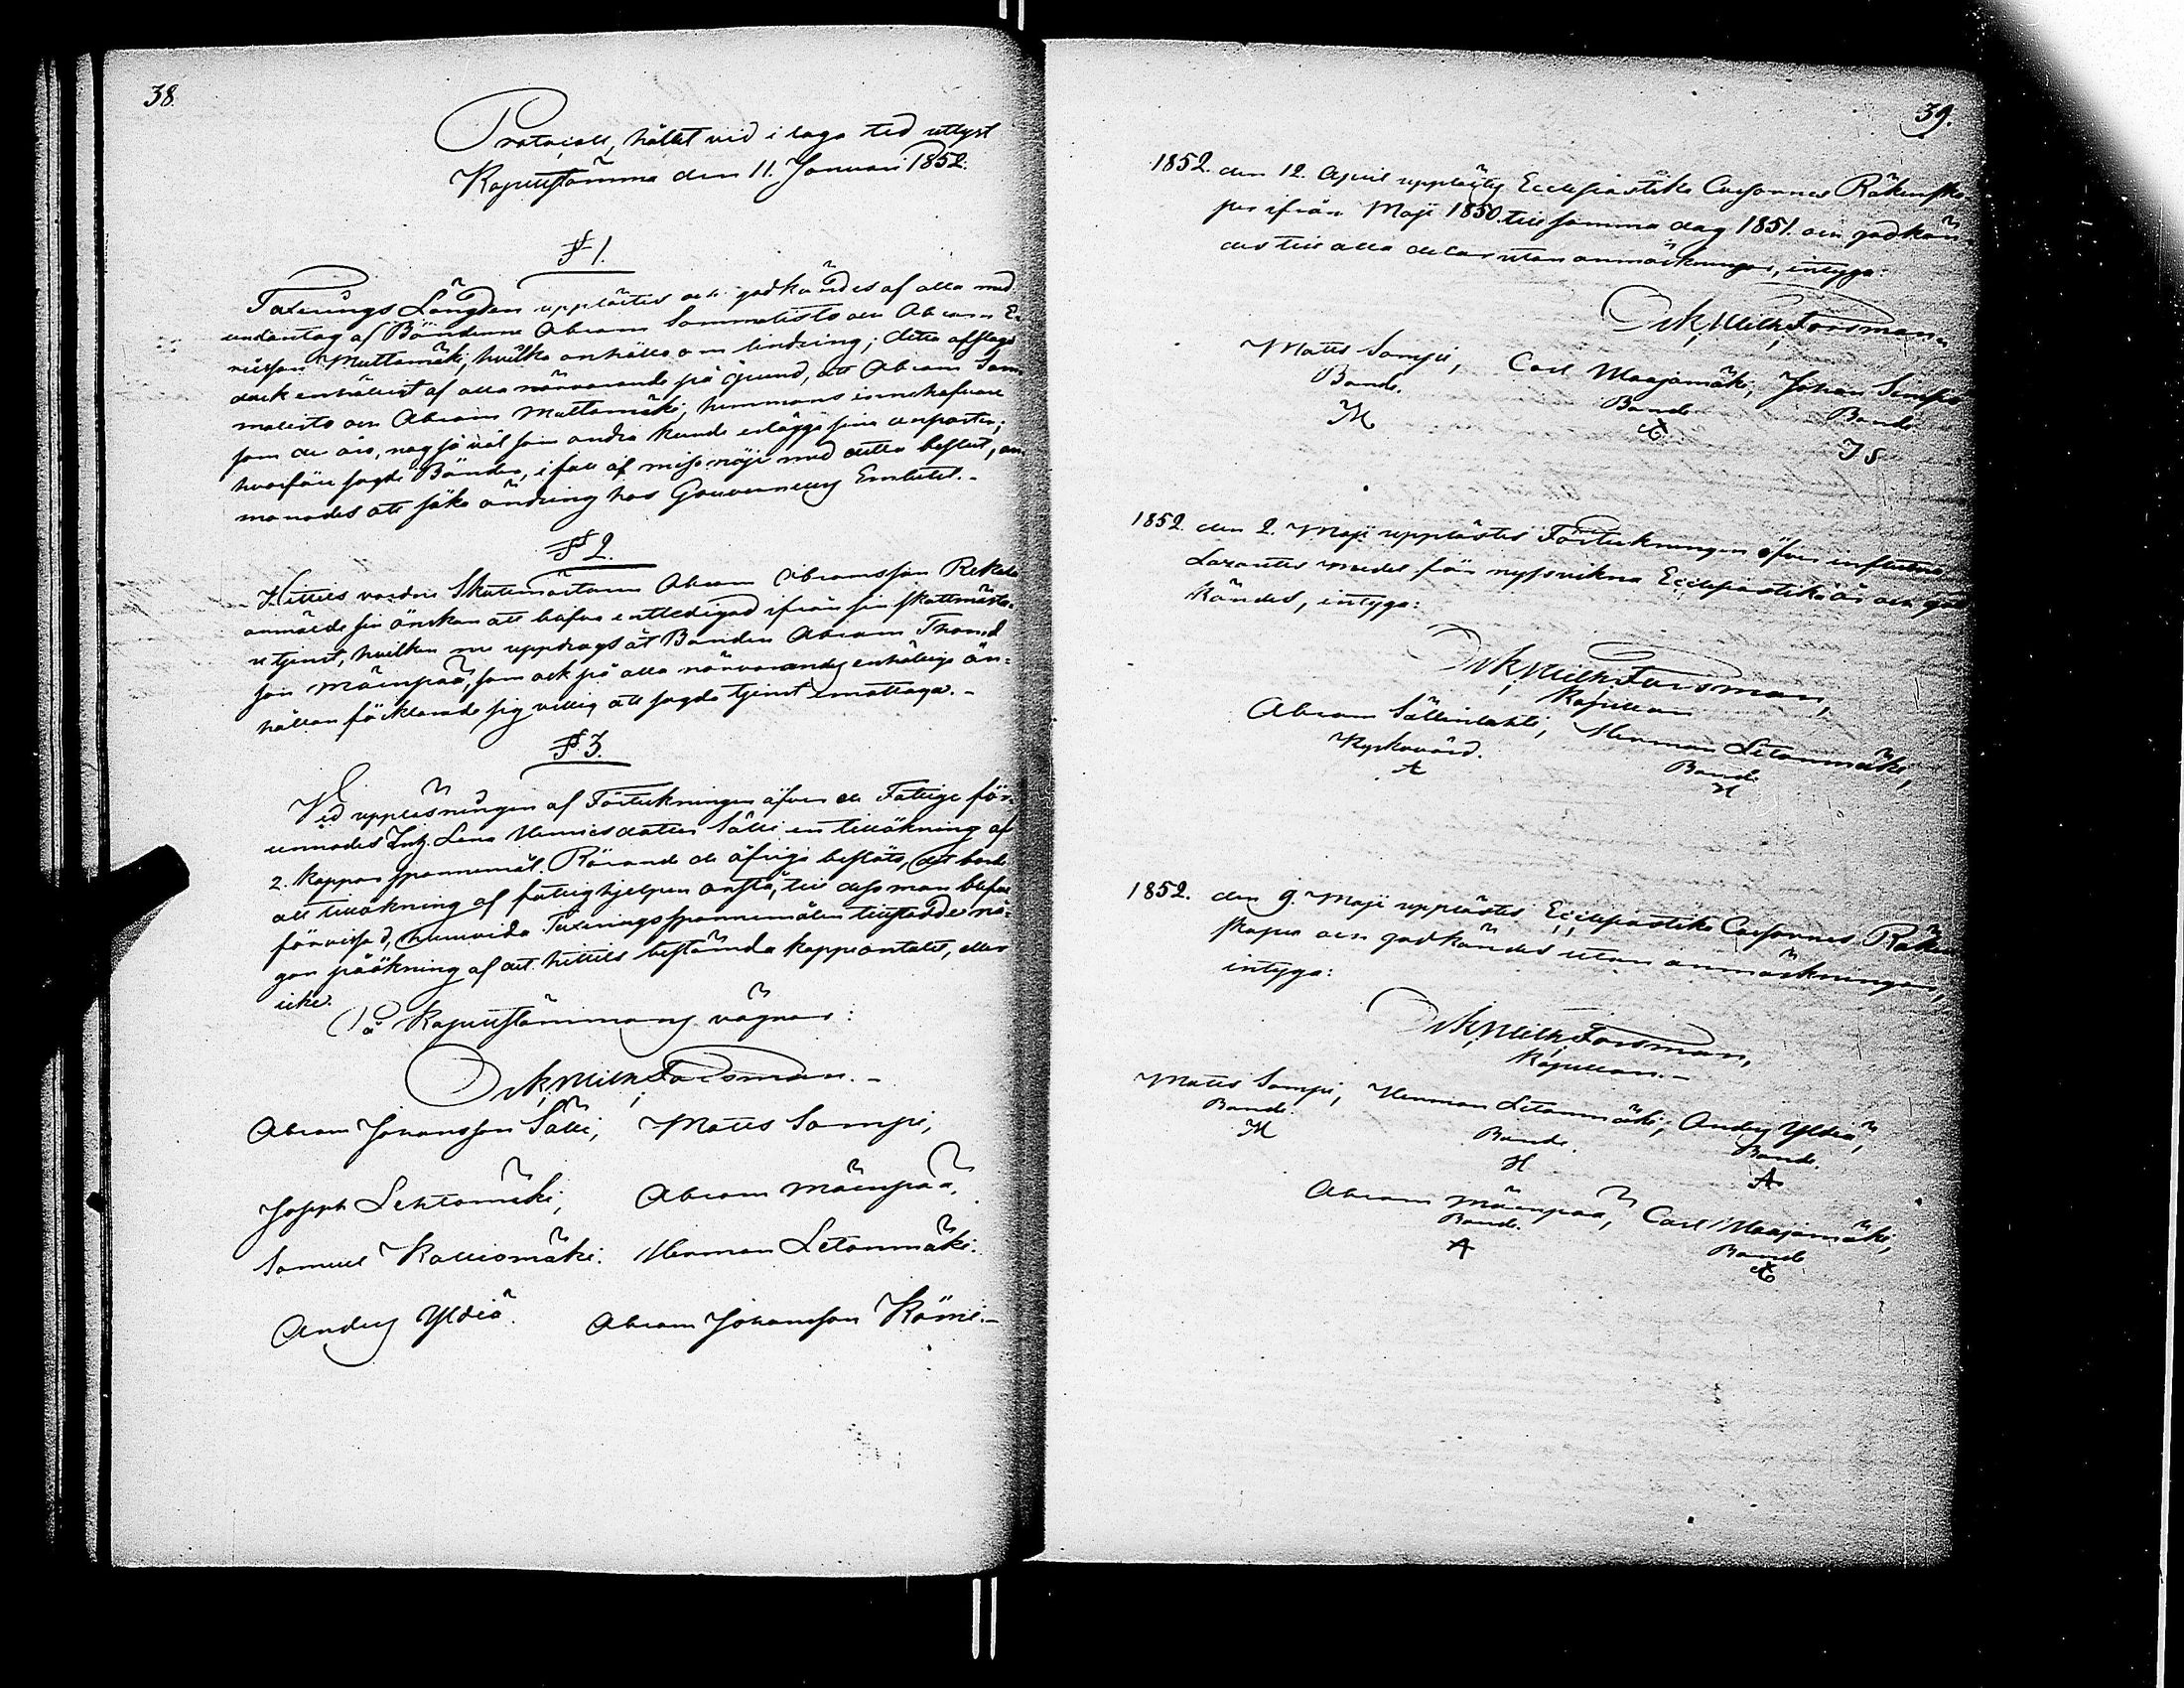 38.
Protocoll, hållet vid i laga tid utlyst
Kapellstämma den 11. Januari 1852.
§ 1.
Taxerings Längden upplästes och godkändes af alla med
undantag af Bönderne Abram Sammalisto och Abram E
Muttamäki, hvilka anhöllo om lindring; detta afslogs
dock enhälligt af alla närvarande på grund, att Abram Sam
malisto och Abram Muttamäki, hemmans innehafvare
som de äro, nog så väl som andra kunde erlägga sina anparter;
hvarföre sagde Bönder, i fall af missnöje med detta beslut, an
manades att söka ändring hos Gouverneurs Embetet.-
§ 2.
Hittills varande Skattmästaren Abram Abramsson Rekola
anmälde sin önskan att blifva entledigad ifrån sin skattmästa-
re tjenst, hvilken nu uppdrogs åt Bonden Abram Thomas
son Mäenpää, som ock på alla närvarandes enhälliga an-
hållan förklarade sig villig att sagde tjenst emottaga.-
§ 3.
Vid uppläsningen af Förteckningen öfver de Fattige för-
unnades Inh. Lena Henricsdotter Sälli en tillökning af
2. kappar spannemål. Rörande de öfriga beslöts, att borde
all tillökning af fattighjelpen anstå, till dess man blifvit
förvissad, huruvida Taxerings spannemålen tillstadde nå-
gon påökning af det hittills bestämda kappeantalet, eller
icke.
På Kapellstämmans vägnar:
Er. Wilh. Forsman.-
Abram Johansson Sälli, Matts Sampi,
Joseph Lehtomäki, Abram Mäenpää,
Samuel Kalliomäki. Herman Letonmäki.
Anders Yldiä. Abram Johansson Römi.-
39.
1852. den 12. April upplästes Ecclesiastike Cassornes Räkenska-
per ifrån Maji 1850. till samma dag 1851. och godkän-
des till alla delar utan anmärkningar, intyga:
Er. Wilh. Forsman
Matts Sampi, Carl Maajamäki, Johan Simpi
Bonde. Bonde Bonde
M C JS
1852. den 2. Maji upplästes Förteckningen öfver influtne
Lazaretts medel för nyssvikna Ecclesiastikår och god
kändes, intyga:
Er. Wilh. Forsman,
Kapellan
Abram Sällinlahti, Herman Letonmäki,
Kyrkovärd. Bonde
A H
1852. den 9. Maji upplästes Ecclesiastike Cassornes Räken
skaper och godkändes utan anmärkningar,
intyga:
Er. Wilh. Forsman,
Kapellan.-
Matts Sampi, Herman Letonmäki, Anders Yldiä,
Bonde. Bonde. Bonde.
M H A
Abram Mäenpää, Carl Maajamäki,
Bonde. Bonde
A C